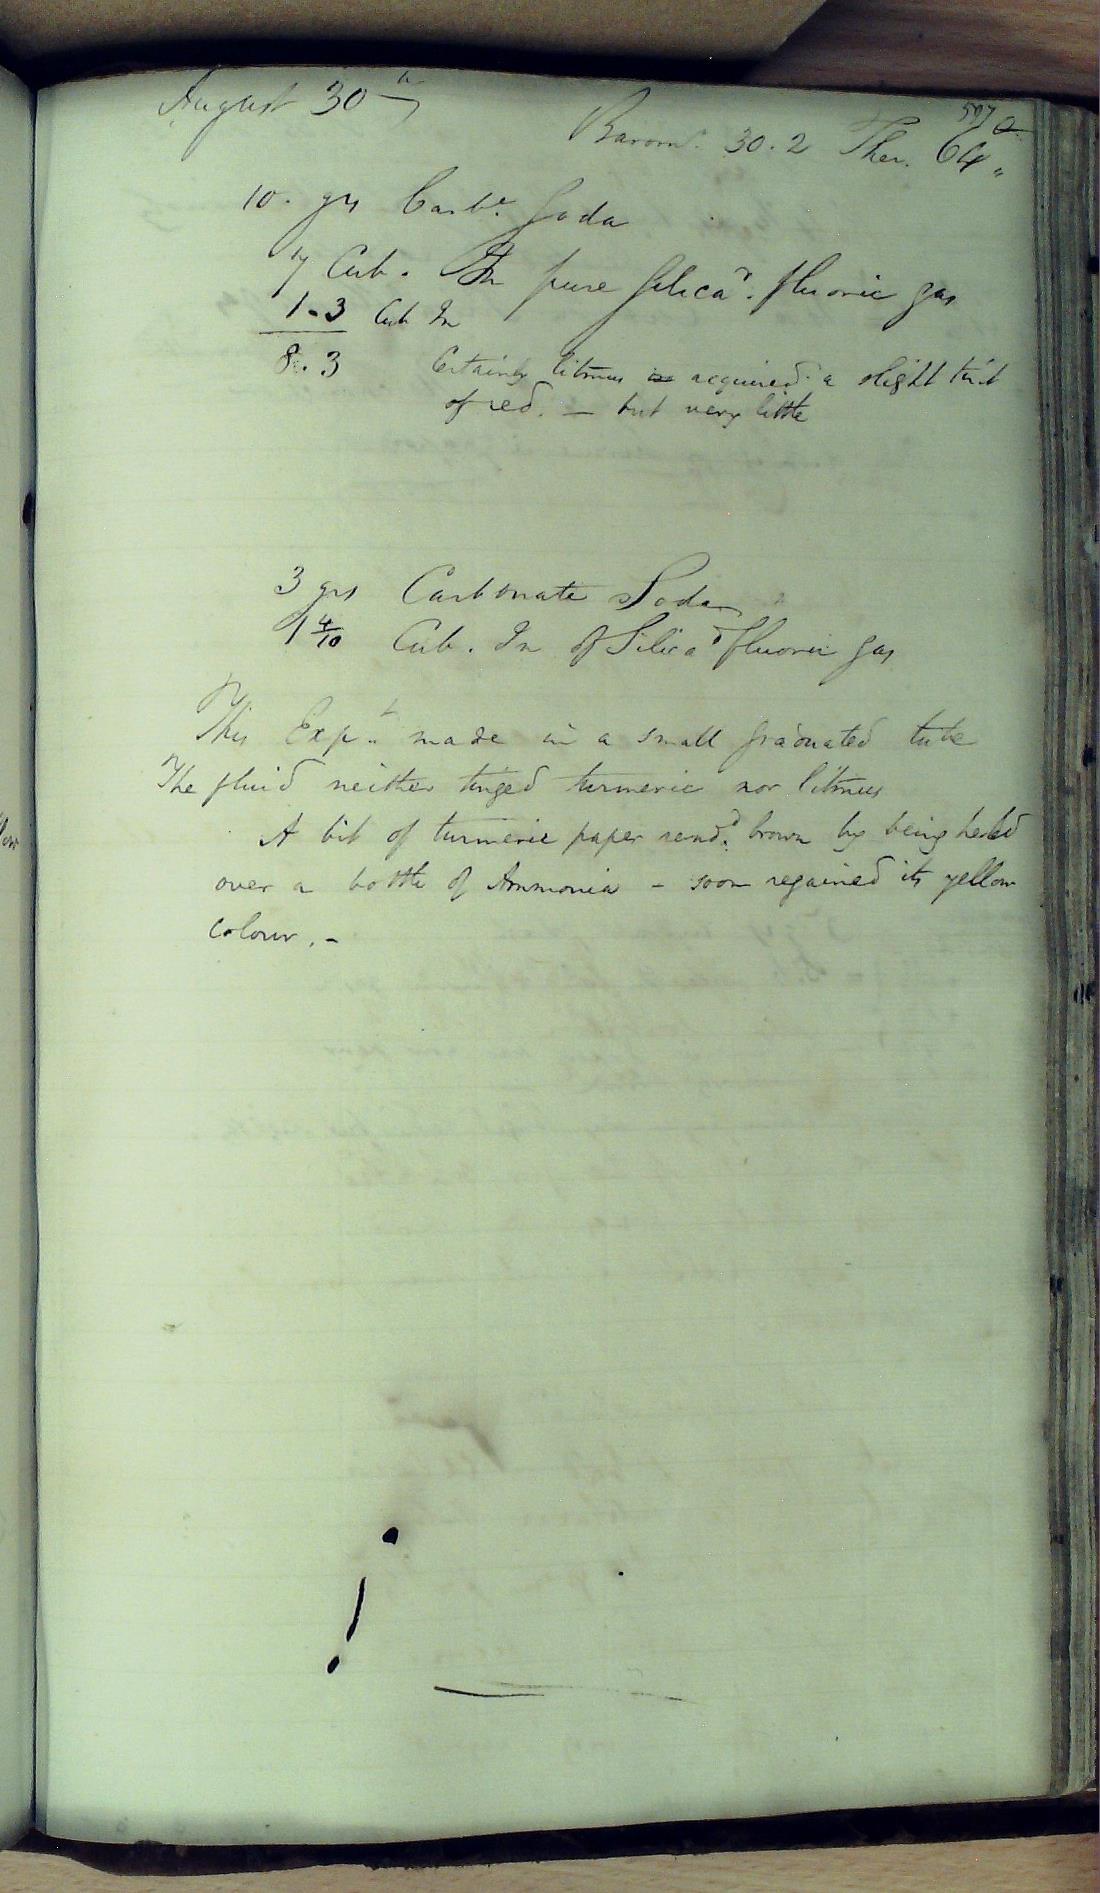 August 30th
Barom.r 30.2 Ther. 64
10. grs Carb.e Soda
7 Cub. In pure Silica.d fluoric gas
1.3 Cub In
8.3 Certainly litmus is acquired a slight tint
of red. — but very little
3 grs Carbonate Soda
1 4/10 Cub. In of Silica.d fluoric gas
This Exp.t made in a small graduated tube
The fluid neither tinged turmeric nor litmus
A bit of turmeric paper rend.d brown by being held
over a bottle of Ammonia - soon regained its yellow
colour. -